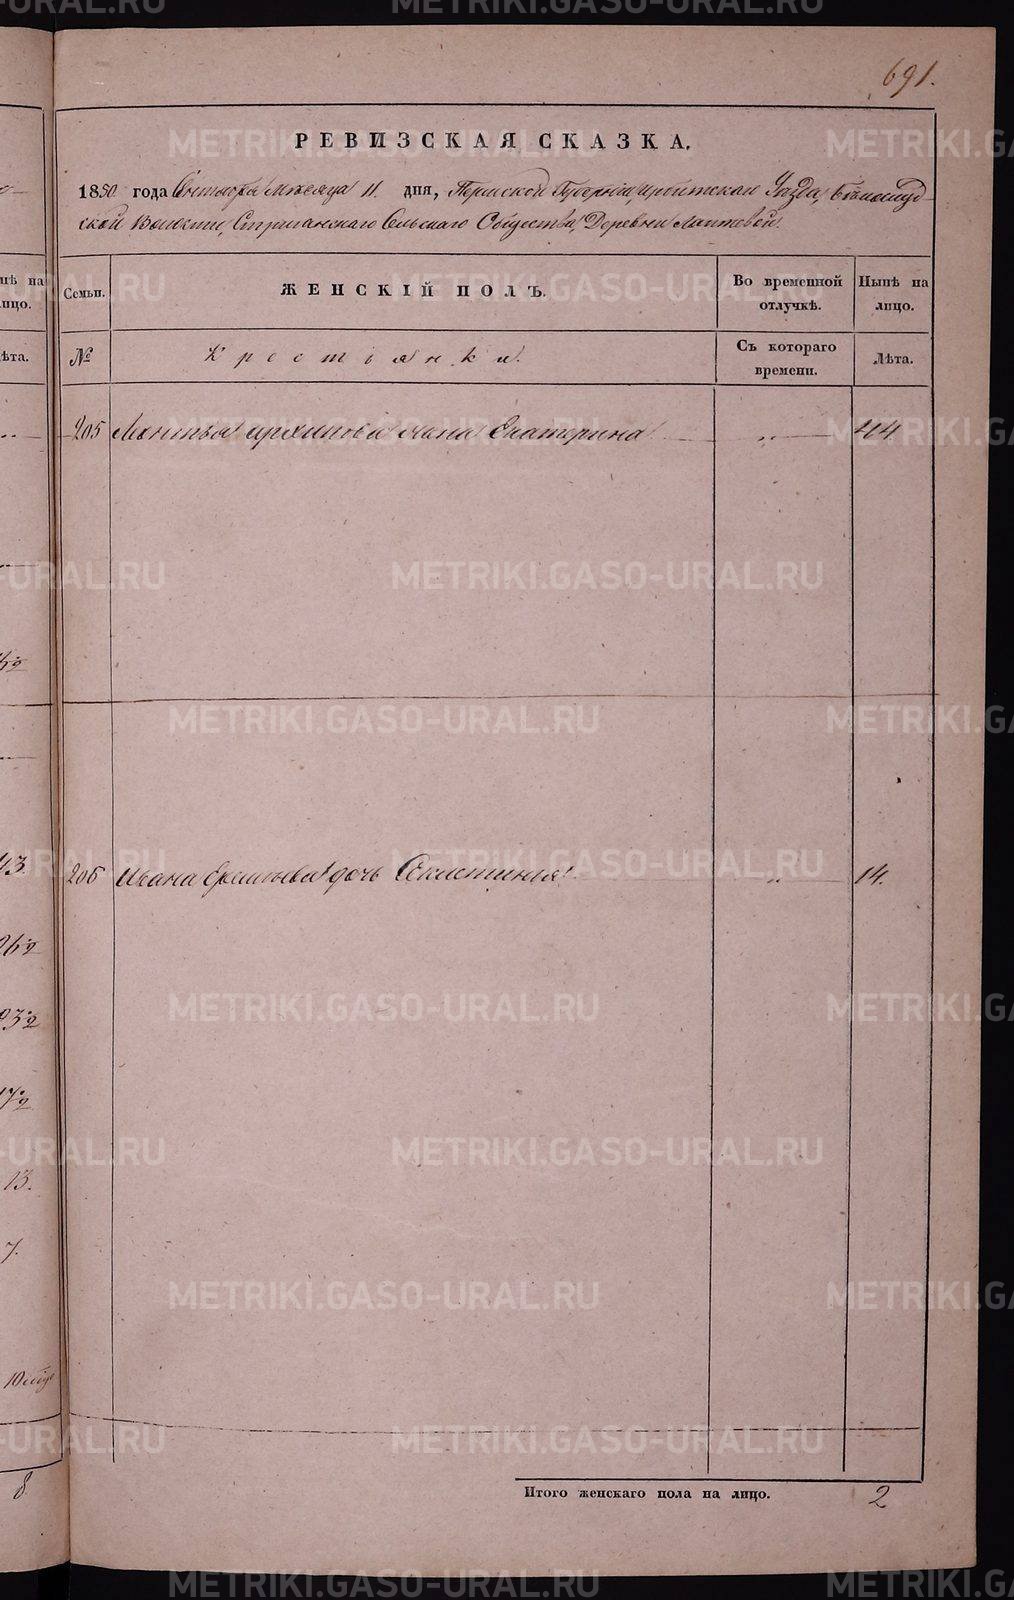 691.
РЕВИЗСКАЯ СКАЗКА.
1850 года Сентября Месяца 11 дня, Пермской Губернии, Ирбитскаго Уезда, Белослуд-
ской Волости, Стриганскаго Сельскаго Общества, Деревни Лаптевой.
нѣ на
лицо.
Семьи.
ЖЕНСКІЙ ПОЛЪ.
Во временной отлучкѣ.
Нынѣ на лицо.
Лѣта.
№
Крестьянки.
Съ котораго времени.
Лѣта.
205 Леонтья Архипова жена Екатерина „ 44.
43.
206 Ивана дочь „ 14.
13.
7.
8
Итого женскаго пола на лицо. 2
METRIKI.GASO-URAL.RU